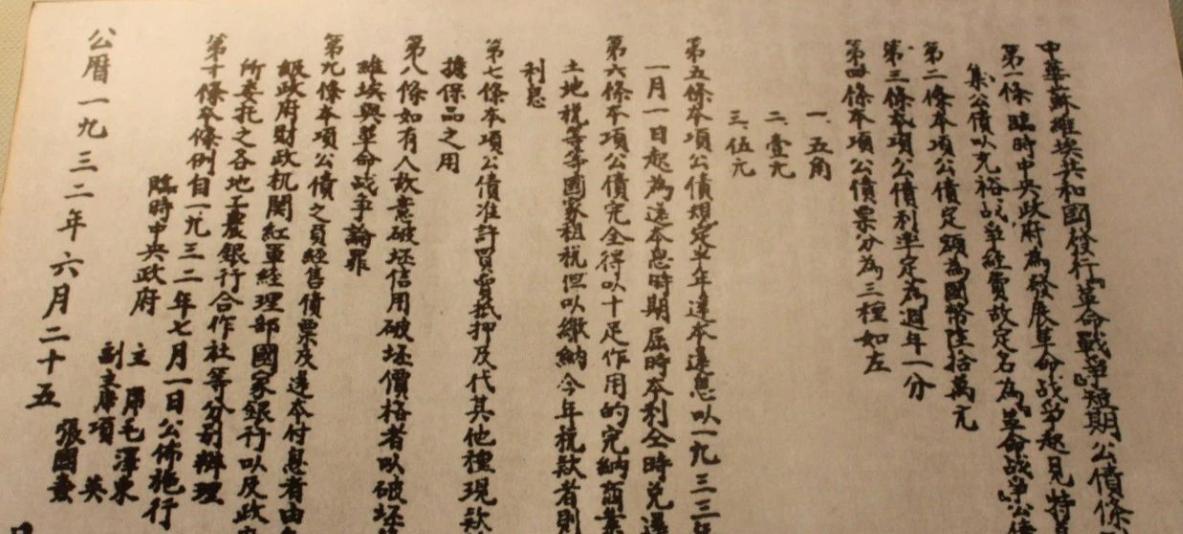 中華蘇維埃共和國發行『革命戰爭』短期公債條
第一條臨時中央政府為發展革命战争起見特
集公債以充裕战争經費故定名為『革命战争』公債
第二條本項公債定額為國幣陸拾萬元
第三條本項公債利率定為週年一分
第四條本項公債票分為三種如左
一、五角
二、壹元
三、伍元
第五條本項公債規定半年還本還息以一九三三
一月一日起為还本息時期屆時本利仝時兑還
第六條本項公債完全得以十足作用的完納商業
土地税等等國家租税但以繳納今年税款者則
利息
第七條本項公債准許買賣抵押及代其他種現款
擔保品之用
第八條如有人故意破坯信用破坯價格者以破坯
維埃與革命战争論罪
第九條本項公債之負經售債票及還本付息者由
級政府財政机関紅軍經理部國家銀行以及政
所委托之各地工農銀行合作社等分别辦理
第十條本條例自一九三二年七月一日公佈施行
臨時中央政府
主席毛澤東
副主席項英
張國燾
公曆一九三二年六月二十五